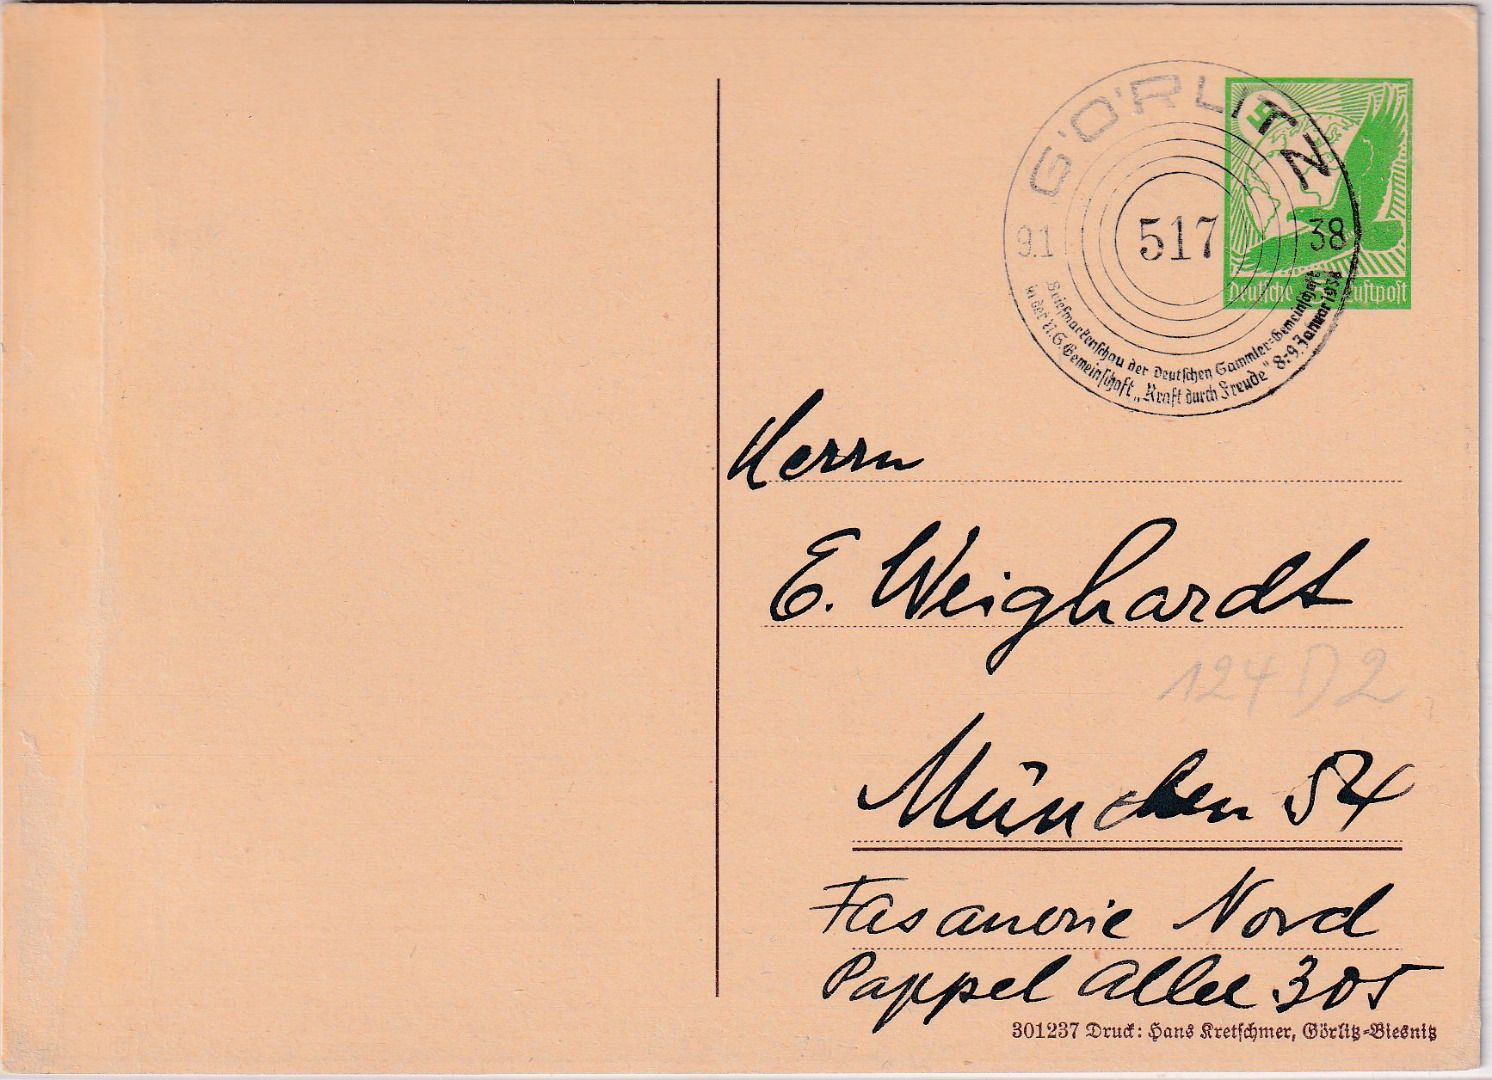 GÖRLITZ
9.1 517 38
Briefmarkenschau der Deutschen Sammler-Gemeinschaft
in der N.S.Gemeinschaft „Kraft durch Freude“ 8.-9. Januar 1938
Deutsche 5 Luftpost
Herrn
E. Weighardt
124 D2
München 54
Fasanerie Nord
Pappel Allee 305
301237 Druck: Hans Kretschmer, Görlitz-Biesnitz